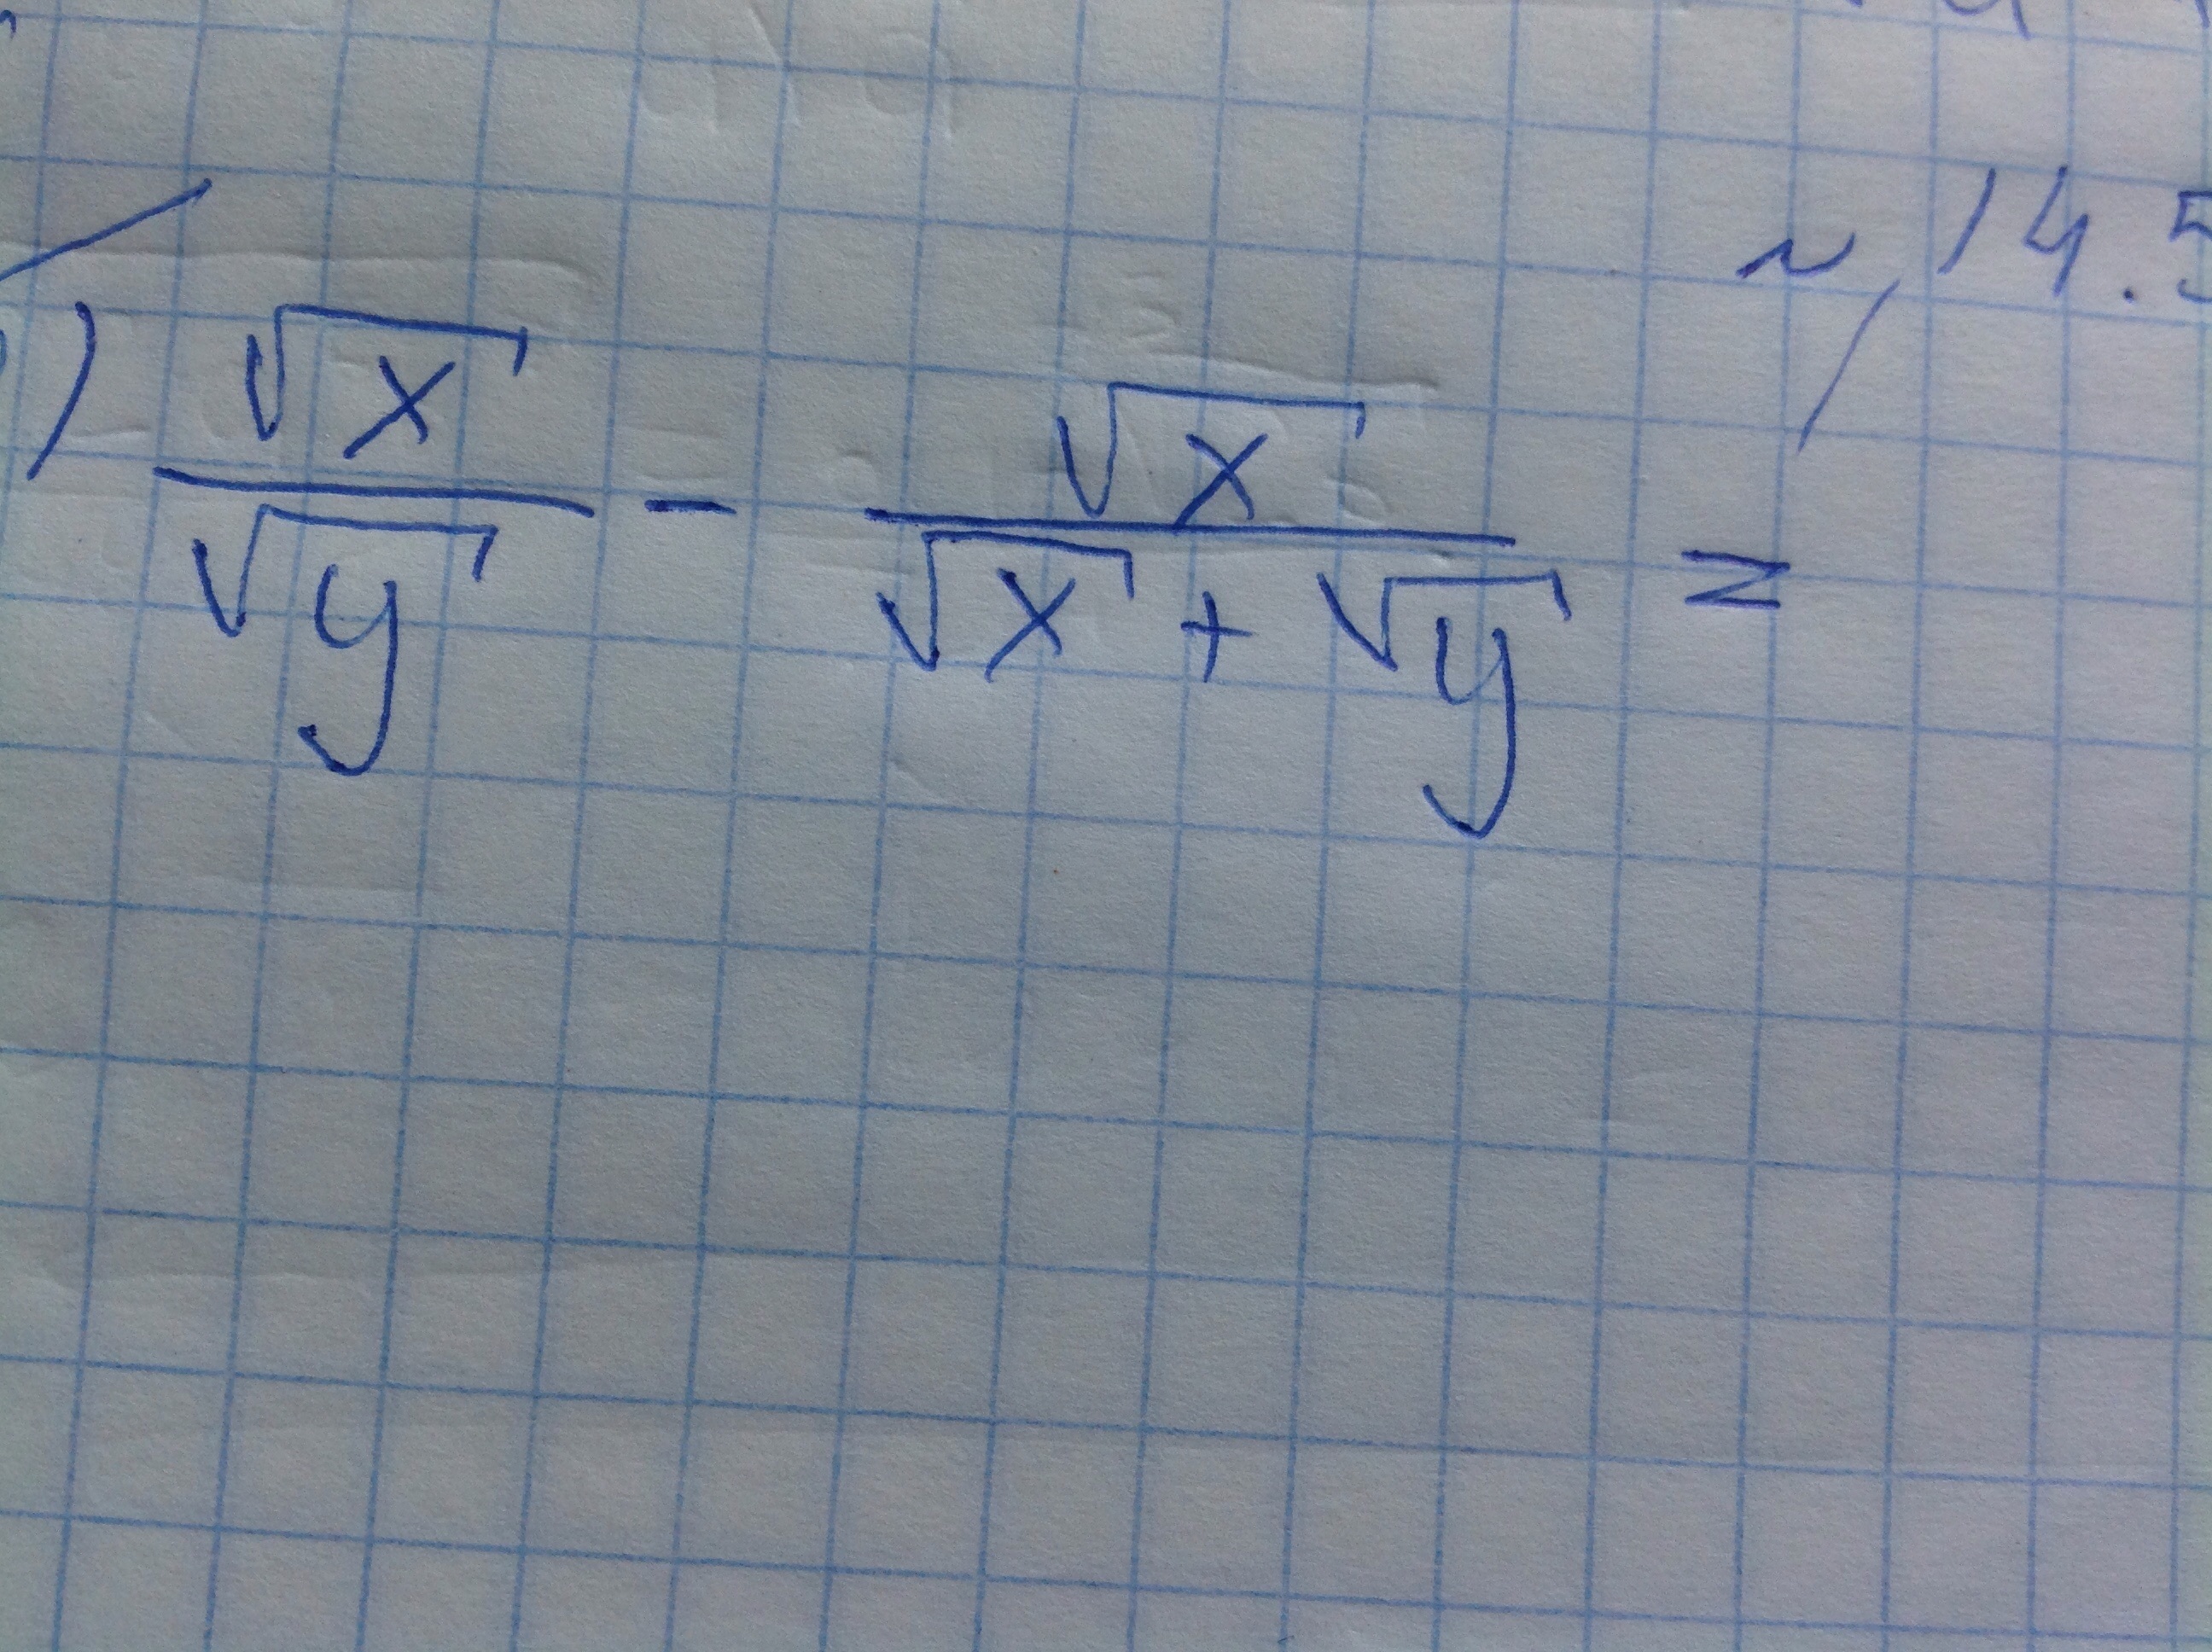 14.5
) √x/√y - √x/(√x + √y) =